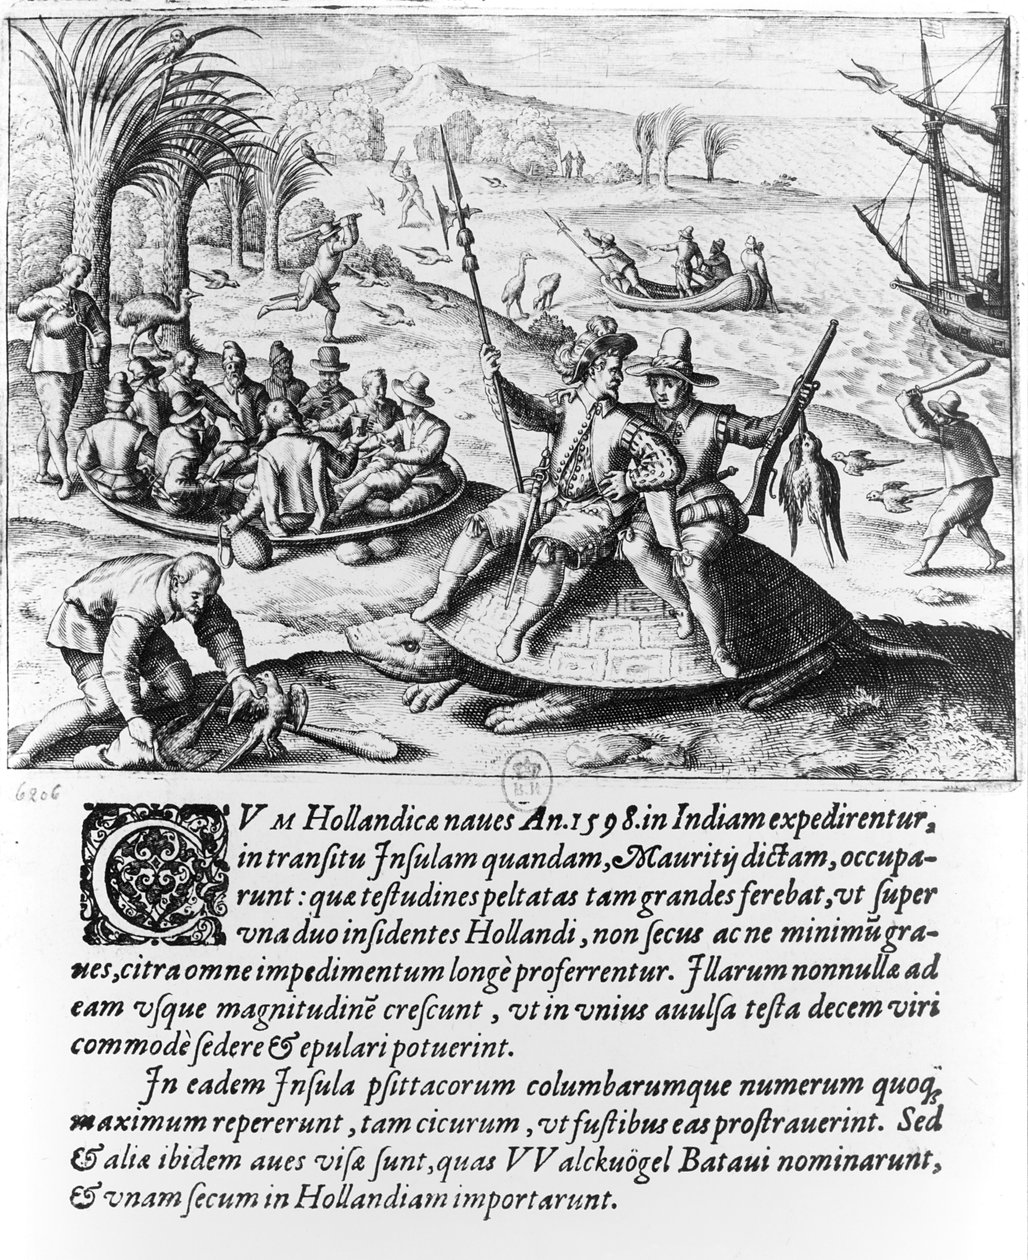 6206
B.R
CVM Hollandicæ naues An. 1598. in Indiam expedirentur,
in tranſitu Inſulam quandam, Maurity dictam, occupa-
runt: quæ teſtudines peltatas tam grandes ferebat, vt ſuper
vna duo inſidentes Hollandi, non ſecus ac ne minimũ gra-
ues, citra omne impedimentum longè proferrentur. Illarum nonnullæ ad
eam vſque magnitudinẽ creſcunt, vt in vnius auulſa teſta decem viri
commodè ſedere & epulari potuerint.
In eadem Inſula pſittacorum columbarumque numerum quoq̃
maximum repererunt, tam cicurum, vt fuſtibus eas proſtrauerint. Sed
& aliæ ibidem aues viſæ ſunt, quas VValckuögel Bataui nominarunt,
& vnam ſecum in Hollandiam importarunt.